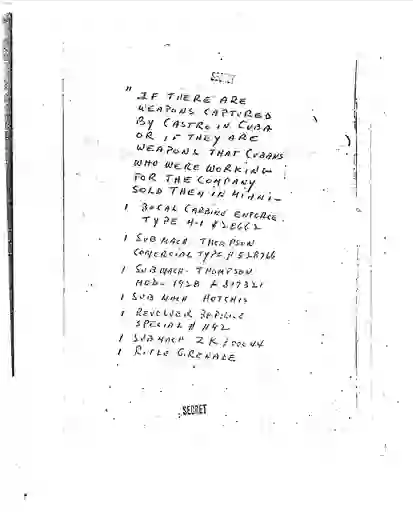 SECRET
" IF THERE ARE
WEAPONS CAPTURED
BY CASTRO IN CUBA
OR IF THEY ARE
WEAPONS THAT CUBANS
WHO WERE WORKING
FOR THE COMPANY
SOLD THEM IN MIAMI -
1 CARBINE
TYPE M-1 # 28662
1 SUB MACH THOMPSON
COMERCIAL TYPE #
1 SUB MACH - THOMPSON
MOD- 1928 #
1 SUB MACH HOTCHIS
1 REVOLVER
SPECIAL #
1 SUB MACH ZK
1 RIFLE GRENADE
SECRET